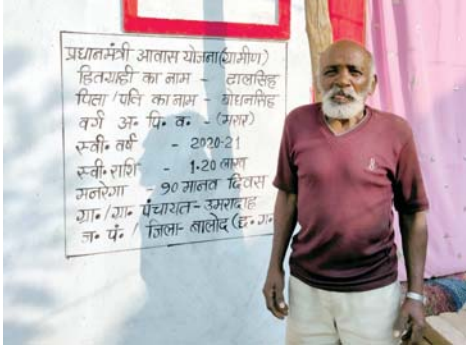 प्रधानमंत्री आवास योजना(ग्रामीण)
हितग्राही का नाम - ढालसिंह
पिता/पति का नाम - बोधनसिंह
वर्ग अ. पि. व. - (मरार)
स्वी. वर्ष - 2020-21
स्वी. राशि - 1.20 लाख
मनरेगा - 90 मानव दिवस
ग्रा./ग्रा. पंचायत- उमरादाह
ज. पं. / जिला- बालोद (छ. ग.